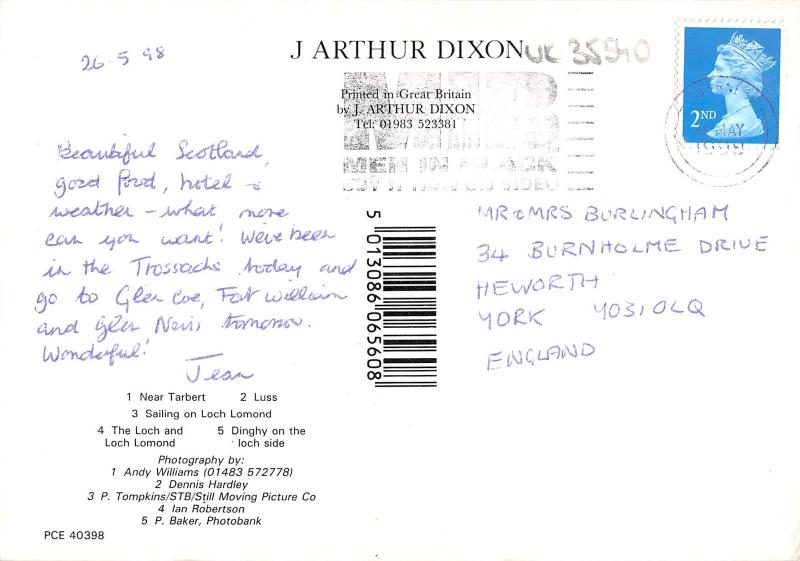 26.5 98
J ARTHUR DIXON
UK 35940
Printed in Great Britain
by J. ARTHUR DIXON
Tel: 01983 523381
MIB
MEN IN BLACK
BUY IT NOW ON VIDEO
2ND
MAY
1998
Beautiful Scotland,
good food, hotel &
weather - what more
can you want! We've been
in the Trossachs today and
go to Glen Coe, Fort William
and Glen Nevis tomorrow.
Wonderful!
Jean
5 013086 065608
MR & MRS BURLINGHAM
34 BURNHOLME DRIVE
HEWORTH
YORK YO31 0LQ
ENGLAND
1 Near Tarbert 2 Luss
3 Sailing on Loch Lomond
4 The Loch and 5 Dinghy on the
Loch Lomond loch side
Photography by:
1 Andy Williams (01483 572778)
2 Dennis Hardley
3 P. Tompkins/STB/Still Moving Picture Co
4 Ian Robertson
5 P. Baker, Photobank
PCE 40398